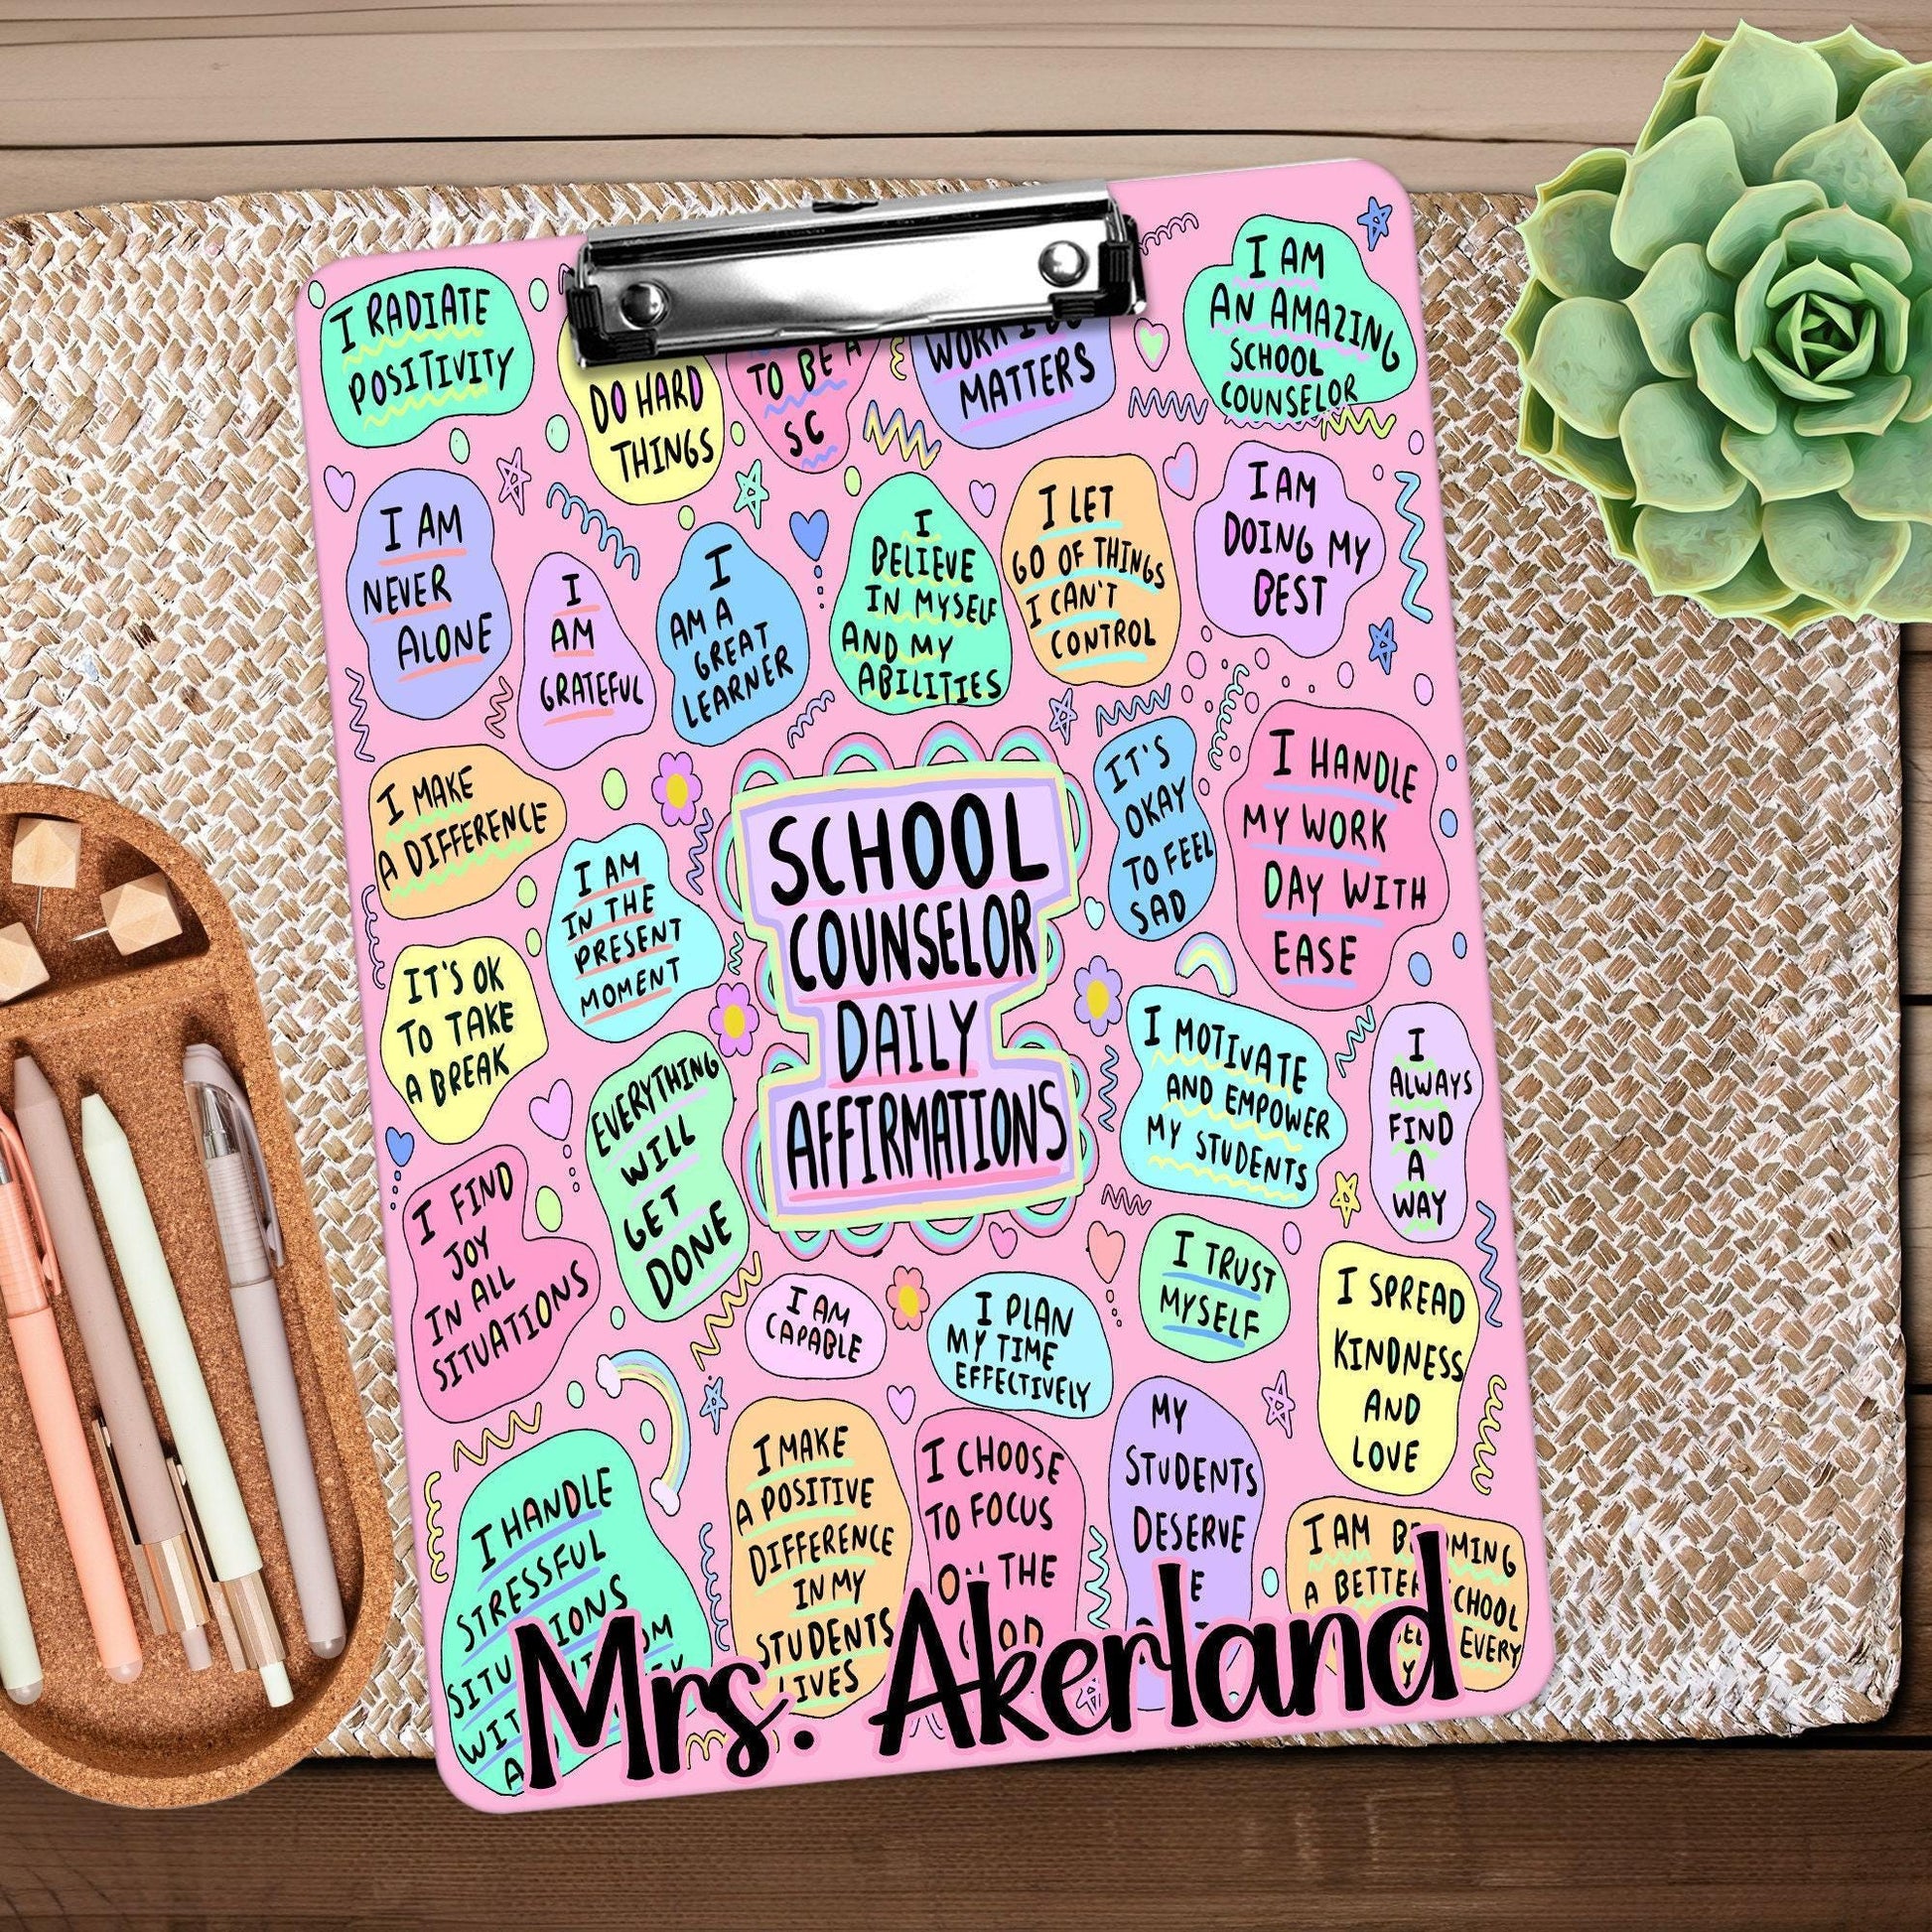 I RADIATE
POSITIVITY
DO HARD
THINGS
TO BE A
SC
WORK I DO
MATTERS
I AM
AN AMAZING
SCHOOL
COUNSELOR
I AM
NEVER
ALONE
I
AM
GRATEFUL
I
AM A
GREAT
LEARNER
I
BELIEVE
IN MYSELF
AND MY
ABILITIES
I LET
GO OF THINGS
I CAN'T
CONTROL
I AM
DOING MY
BEST
I MAKE
A DIFFERENCE
I AM
IN THE
PRESENT
MOMENT
SCHOOL
COUNSELOR
DAILY
AFFIRMATIONS
IT'S
OKAY
TO FEEL
SAD
I HANDLE
MY WORK
DAY WITH
EASE
IT'S OK
TO TAKE
A BREAK
EVERYTHING
WILL
GET
DONE
I MOTIVATE
AND EMPOWER
MY STUDENTS
I
ALWAYS
FIND
A
WAY
I FIND
JOY
IN ALL
SITUATIONS
I AM
CAPABLE
I PLAN
MY TIME
EFFECTIVELY
I TRUST
MYSELF
I SPREAD
KINDNESS
AND
LOVE
I HANDLE
STRESSFUL
I MAKE
A POSITIVE
DIFFERENCE
IN MY
STUDENTS
LIVES
I CHOOSE
TO FOCUS
ON THE
MY
STUDENTS
DESERVE
I AM BECOMING
A BETTER SCHOOL
EVERY
Mrs. Akerland